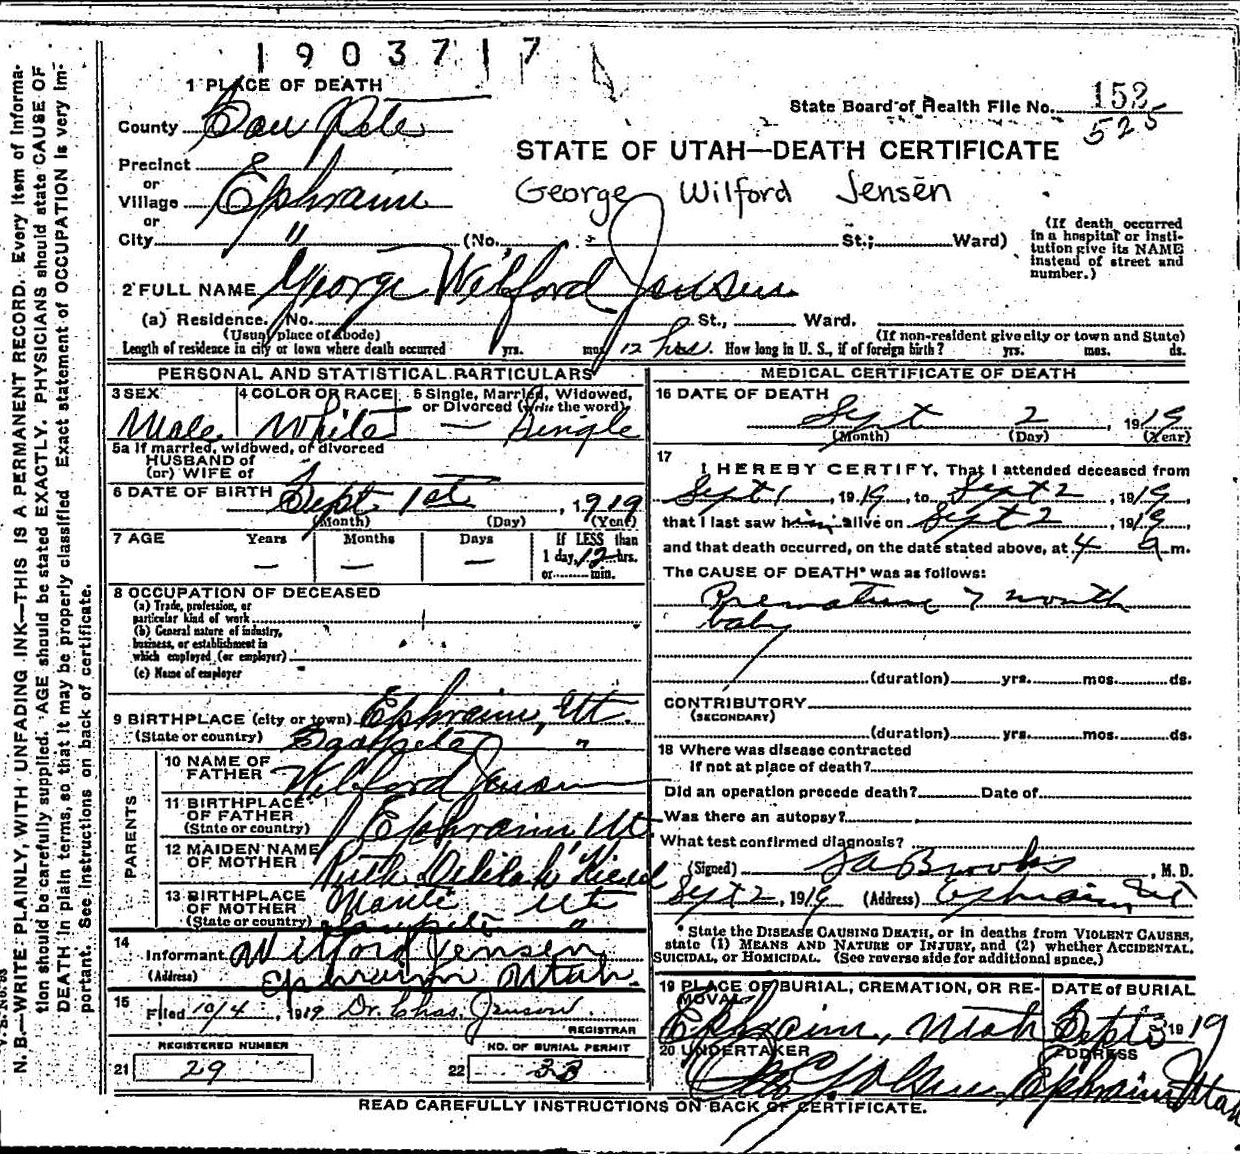 1903717
1 PLACE OF DEATH
State Board of Health File No. 152
525
County San Pete
STATE OF UTAH—DEATH CERTIFICATE
Precinct
or
Village Ephraim
George Wilford Jensen
or
City " (No. St.; Ward)
(If death occurred in a hospital or institution give its NAME instead of street and number.)
2 FULL NAME George Wilford Jensen
(a) Residence. No. St., Ward.
(Usual place of abode) (If non-resident give city or town and State)
Length of residence in city or town where death occurred yrs. mos. 12 hrs. How long in U. S., if of foreign birth? yrs. mos. ds.
PERSONAL AND STATISTICAL PARTICULARS
3 SEX Male
4 COLOR OR RACE White
5 Single, Married, Widowed, or Divorced (write the word) — Single
5a If married, widowed, or divorced
HUSBAND of
(or) WIFE of
6 DATE OF BIRTH Sept 1st, 1919
(Month) (Day) (Year)
7 AGE Years — Months — Days — If LESS than 1 day, 12 hrs. or min.
8 OCCUPATION OF DECEASED
(a) Trade, profession, or
particular kind of work
(b) General nature of industry,
business, or establishment in
which employed (or employer)
(c) Name of employer
9 BIRTHPLACE (city or town) Ephraim, Ut.
(State or country) Sanpete "
PARENTS
10 NAME OF FATHER Wilford Jensen
11 BIRTHPLACE OF FATHER (State or country) Ephraim Ut.
12 MAIDEN NAME OF MOTHER Ruth Delilah
13 BIRTHPLACE OF MOTHER Manti Ut
(State or country) Sanpete "
14
Informant Wilford Jensen
(Address) Ephraim Utah.
15
Filed 10/4, 1919 Dr. Chas. Jenson.
REGISTRAR
REGISTERED NUMBER
21 29
NO. OF BURIAL PERMIT
22 33
MEDICAL CERTIFICATE OF DEATH
16 DATE OF DEATH
Sept 2, 1919
(Month) (Day) (Year)
17
I HEREBY CERTIFY, That I attended deceased from
Sept 1, 1919, to Sept 2, 1919,
that I last saw him alive on Sept 2, 1919,
and that death occurred, on the date stated above, at 4 a m.
The CAUSE OF DEATH* was as follows:
Premature 7 month
baby
(duration) yrs. mos. ds.
CONTRIBUTORY
(SECONDARY)
(duration) yrs. mos. ds.
18 Where was disease contracted
If not at place of death?
Did an operation precede death? Date of
Was there an autopsy?
What test confirmed diagnosis?
(Signed) Brooks, M. D.
Sept 2, 1919 (Address) Ephraim, Ut
* State the DISEASE CAUSING DEATH, or in deaths from VIOLENT CAUSES,
state (1) MEANS AND NATURE OF INJURY, and (2) whether ACCIDENTAL,
SUICIDAL, or HOMICIDAL. (See reverse side for additional space.)
19 PLACE OF BURIAL, CREMATION, OR REMOVAL
Ephraim, Utah
DATE of BURIAL
Sept 3 1919
20 UNDERTAKER
Olsen
ADDRESS
Ephraim Utah
READ CAREFULLY INSTRUCTIONS ON BACK OF CERTIFICATE.
N. B.—WRITE PLAINLY, WITH UNFADING INK—THIS IS A PERMANENT RECORD. Every item of information should be carefully supplied. AGE should be stated EXACTLY. PHYSICIANS should state CAUSE OF DEATH in plain terms, so that it may be properly classified. Exact statement of OCCUPATION is very important. See instructions on back of certificate.